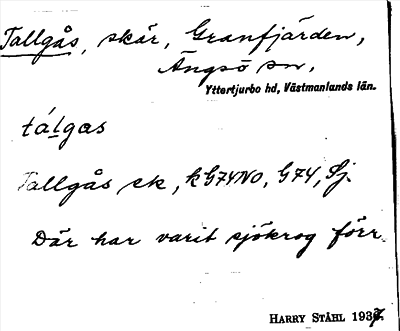 Tallgås, skär, Granfjärden,
Ängsö sn,
Yttertjurbo hd, Västmanlands län.
tálgas
Tallgås sk, k G74NO, G74, Sj.
Där har varit sjökrog förr.
HARRY STÅHL 1937.